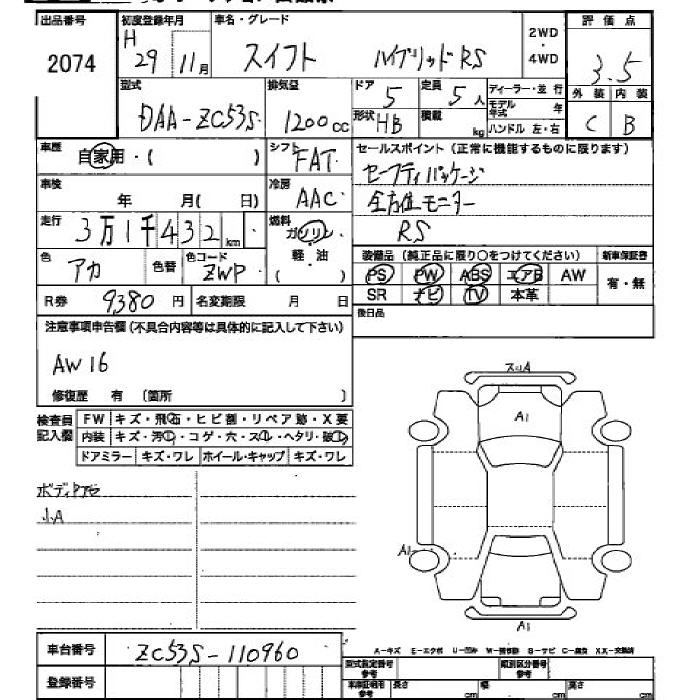 出品番号
2074
初度登録年月
H 29 11月
車名・グレード
スイフト ハイブリッドRS
2WD
・
4WD
評価点
3.5
外装 内装
C B
型式
DAA-ZC53S
排気量
1200cc
ドア
5
定員
5人
形状
HB
積載
kg
ディーラー・並行
モデル年式 年
ハンドル 左・右
車歴
自家用・( )
シフト
FAT
車検
年 月( 日)
冷房
AAC
セールスポイント(正常に機能するものに限ります)
セーフティパッケージ
全方位モニター
RS
走行
3万1千432km
燃料
ガソリン
軽・油
( )
色
アカ
色替
色コード
ZWP
装備品(純正品に限り○をつけてください)
新車保証書
PS PW ABS エアB AW
SR ナビ TV 本革
有・無
R券 9380円
名変期限 月 日
後日品
注意事項申告欄(不具合内容等は具体的に記入して下さい)
AW16
修復歴 有 〔箇所 〕
検査員
記入欄
FW キズ・飛石・ヒビ割・リペア跡・X要
内装 キズ・汚・コゲ・穴・スレ・ヘタリ・破レ
ドアミラー キズ・ワレ ホイール・キャップ キズ・ワレ
小A
スリA
A1
A1
A1
車台番号
ZC53S-110960
登録番号
A-キズ E-エクボ U-凹み
型式指定番号
参考
類別区分番号
参考
参考
長さ cm 幅 cm 高さ cm